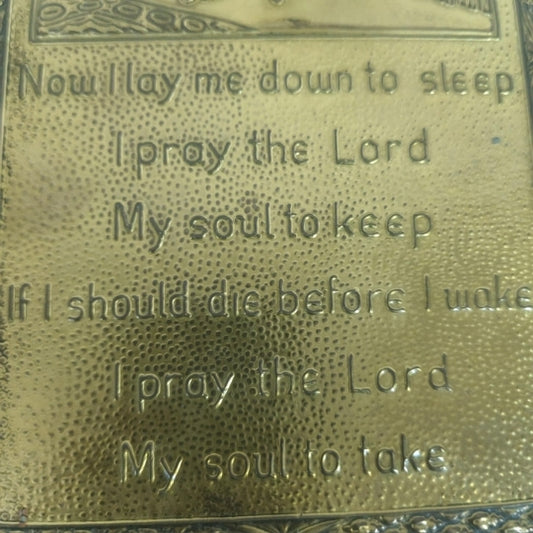 Now I lay me down to sleep.
I pray the Lord
My soul to keep
If I should die before I wake
I pray the Lord
My soul to take